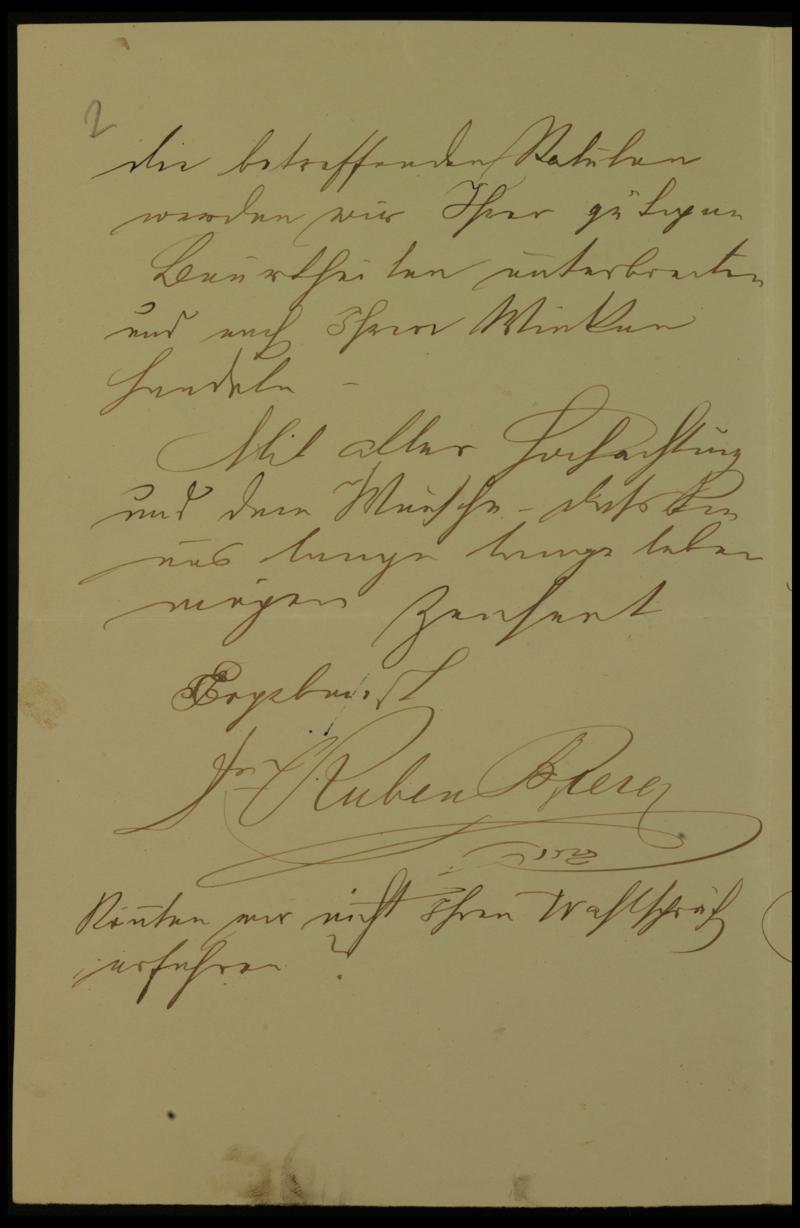 2
die betreffenden Statuten
werden wir Ihrer gütigen
Beurtheilen unterbreiten
und nach Ihren Winken
handeln –
Mit aller Hochachtung
und dem Wunsche – daß Sie
uns lange lange leben
mögen zeichnet
Ergebenst
Dr. Ruben Bierer
Könnten wir nicht Ihren Wahlspruch
erfahren ?